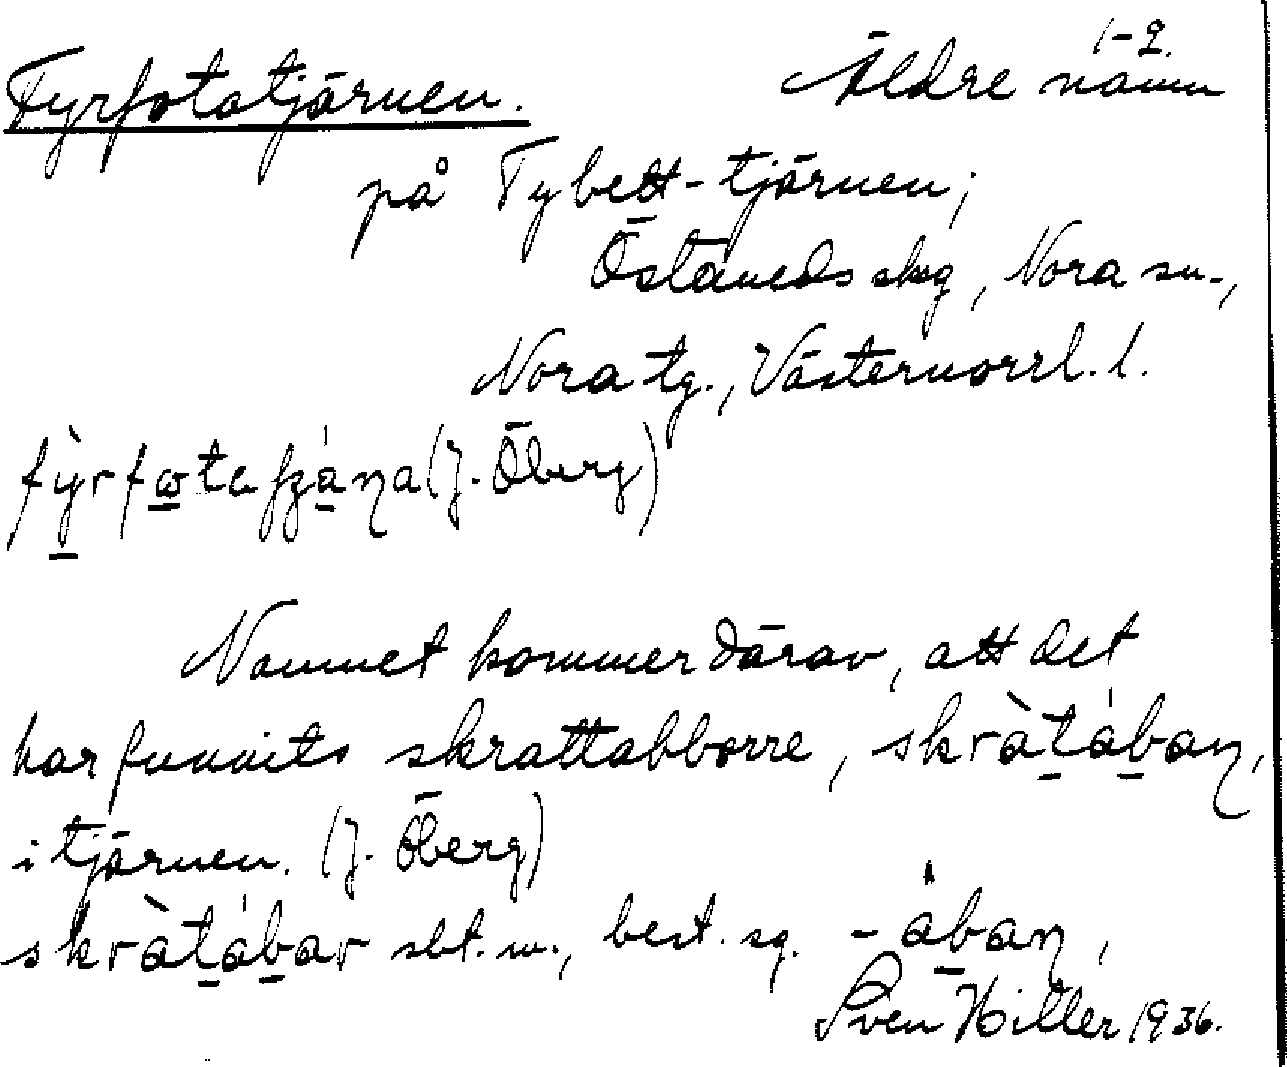 1-2.
Fyrfotatjärnen. Äldre namn
på Tybett-tjärnen;
Östaneds skog, Nora sn.,
Nora tg., Västernorrl. l.
(J. Öberg)
Namnet kommer därav, att det
har funnits skrattabborre, skràtában,
i tjärnen. (J. Öberg)
skràtábar sbt. m., best. sg. -ában,
Sven Hitler 1936.